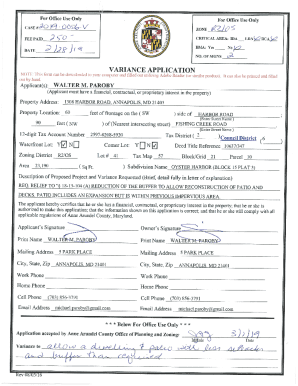 For Office Use Only
CASE # 2019-0036-V
FEE PAID 250-
DATE 2/28/19
For Office Use Only
ZONE
CRITICAL AREA: IDA LDA RCA
BMA: Yes No
NO. OF SIGNS
VARIANCE APPLICATION
Applicant(s): WALTER M. PAROBY
(Applicant must have a financial, contractual, or proprietary interest in the property)
Property Address: 1308 HARBOR ROAD, ANNAPOLIS, MD 21403
Property Location: 60 feet of frontage on the (SW) side of HARBOR ROAD
feet (NW) of (Nearest intersecting street) FISHING CREEK ROAD
(Enter Street Name)
12-digit Tax Account Number Tax District 2 Council District 6
Waterfront Lot: Y N Corner Lot: Y N Deed Title Reference
Zoning District R2/OS Lot # 41 Tax Map 57 Block/Grid 21 Parcel 10
Area (Sq. Ft.) Subdivision Name OYSTER HARBOR BLOCK 15 PLAT 3
Description of Proposed Project and Variance Requested (Brief, detail fully in letter of explanation)
REQ. RELIEF TO § 18-13-104 (A) REDUCTION OF THE BUFFER TO ALLOW RECONSTRUCTION OF PATIO AND
DECKS. PATIO INCLUDES AN EXPANSION BUT IS WITHIN PREVIOUS IMPERVIOUS AREA.
The applicant hereby certifies that he or she has a financial, contractual, or proprietary interest in the property; that he or she is
authorized to make this application; that the information shown on this application is correct; and that he or she will comply with all
applicable regulations of Anne Arundel County, Maryland.
Applicant's Signature
Owner's Signature
Print Name WALTER M. PAROBY
Print Name WALTER M. PAROBY
Mailing Address 5 PARK PLACE
Mailing Address 5 PARK PLACE
City, State, Zip ANNAPOLIS MD 21401
City, State, Zip ANNAPOLIS, MD 21401
Work Phone
Work Phone
Home Phone
Home Phone
Cell Phone
Cell Phone
Email Address michael.paroby@gmail.com
Email Address michael.paroby@gmail.com
*** Below For Office Use Only ***
Application accepted by Anne Arundel County Office of Planning and Zoning: 3/1/19
Initials Date
Variance to allow a dwelling & patio with less setbacks
and buffer than required